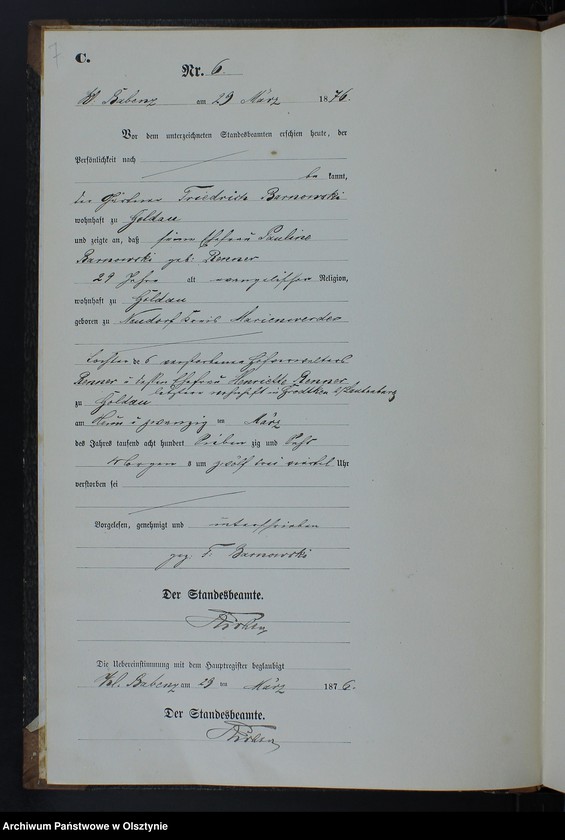 7
C.
Nr. 6.
Kl. Babenz am 29 März 1876.
Vor dem unterzeichneten Standesbeamten erschien heute, der
Persönlichkeit nach
be kannt,
der Gärtner Friedrich Barnowski
wohnhaft zu Goldau
und zeigte an, daß seine Ehefrau Pauline
Barnowski geb: Renner
29 Jahre alt evangelischer Religion,
wohnhaft zu Goldau
geboren zu Neudorf Kreis Marienwerder
Tochter des verstorbenen
Renner u dessen Ehefrau Henriette Renner
letztere wohnhaft in
zu Goldau
am Neun u zwanzig ten März
des Jahres tausend acht hundert Sieben zig und Sechs
Morgens um zwölf drei viertel Uhr
verstorben sei
Vorgelesen, genehmigt und unterschrieben
gez. F. Barnowski
Der Standesbeamte.
Die Uebereinstimmung mit dem Hauptregister beglaubigt
Kl. Babenz am 29 ten März 1876.
Der Standesbeamte.
Archiwum Państwowe w Olsztynie